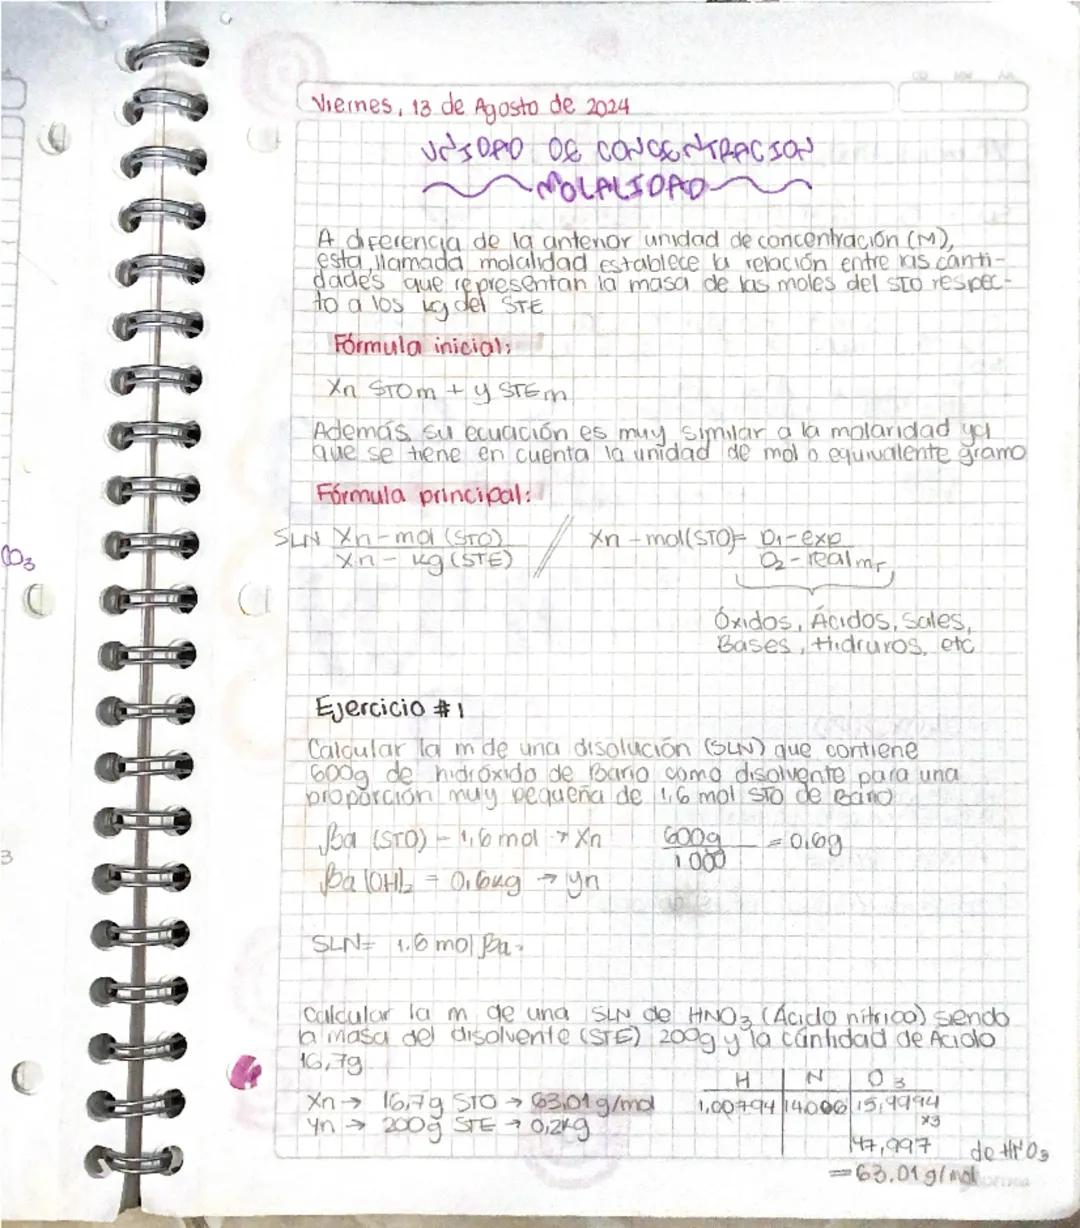 Viernes, 13 de Agosto de 2024
UNIDAD DE CONCENTRACION
MOLALIDAD
A diferencia de la anterior unidad de concentración (M),
esta llamada molalidad establece la relación entre las canti-
dades que representan la masa de las moles del STO respec-
to a los kg del STE
Fórmula inicial:
Xn STOm + y STEm
Además su ecuación es muy similar a la molaridad ya
que se tiene en cuenta la unidad de mol o equivalente gramo
Fórmula principal:
SLN Xn-mol (STO) // Xn-mol(STO)= D1-exp
Xn-kg (STE) D2-realmr
Óxidos, Ácidos, Sales,
Bases, Hidruros, etc
CO3
Ejercicio #1
Calcular la m de una disolución (SLN) que contiene
600g de hidróxido de Bario como disolvente para una
proporción muy pequeña de 1,6 mol STO de Bario
Ba (STO) - 1,6 mol → Xn 600g = 0,6g
1000
Ba (OH)2 = 0,6kg → yn
3
SLN= 1.6 mol Ba.
Calcular la m de una SLN de HNO3 (Ácido nítrico) siendo
la masa del disolvente (STE) 200g y la cantidad de Ácido
16,7g
H N O3
Xn → 16,7g STO → 63,01 g/mol 1,00794 14006 15,9994
Yn → 200g STE → 0,2kg x3
47,997 de HNO3
=63.01 g/mol